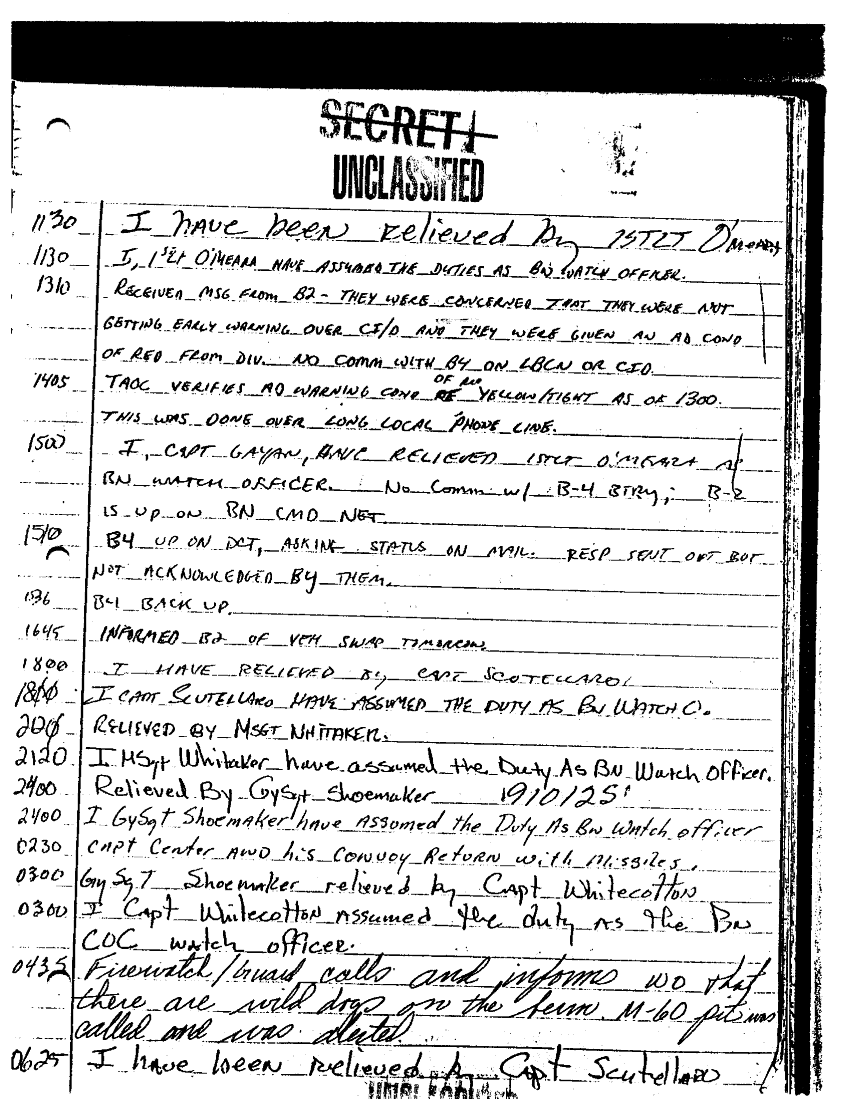 SECRET
UNCLASSIFIED
1130 I have been relieved by 1STLT O'MEARA
1130 I, 1STLT O'MEARA HAVE ASSUMED THE DUTIES AS BN WATCH OFFICER.
1310 RECEIVED MSG FROM B2 - THEY WERE CONCERNED THAT THEY WERE NOT
GETTING EARLY WARNING OVER CI/D AND THEY WERE GIVEN AN AD COND
OF RED FROM DIV. NO COMM WITH B4 ON LBCN OR CID.
1405 TAOC VERIFIES AD WARNING COND OF YELLOW/TIGHT AS OF 1300.
THIS WAS DONE OVER LONG LOCAL PHONE LINE.
1500 I, CAPT GAYAN, HAVE RELIEVED 1STLT O'MEARA AS
BN WATCH OFFICER. No Comm w/ B-4 BTRY; B-2
IS UP ON BN CMD NET
1510 B4 UP ON DCT, ASKING STATUS ON MAIL. RESP SENT OUT BUT
NOT ACKNOWLEDGED BY THEM.
1536 B4 BACK UP.
1645 INFORMED B2 OF VEH SWAP TOMORROW.
1800 I HAVE RELIEVED BY CAPT SCUTELLARO.
1800 I CAPT SCUTELLARO HAVE ASSUMED THE DUTY AS BN WATCH O.
RELIEVED BY MSGT WHITAKER.
2120 I MSgt Whitaker have assumed the Duty As BN Watch Officer.
2400 Relieved By GySgt Shoemaker 910125
2400 I GySgt Shoemaker have Assumed the Duty As BN Watch officer
0230 CAPT Center AND his Convoy Return with Missiles.
0300 GySgT Shoemaker relieved by Capt Whitecotton
0300 I Capt Whitecotton Assumed the duty as the BN
COC watch officer.
0435 Firewatch/Guard calls and informs WO that
there are wild dogs on the berm. M-60 pits was
called and was alerted.
0625 I have been relieved by Capt Scutellaro
UNCLASSIFIED